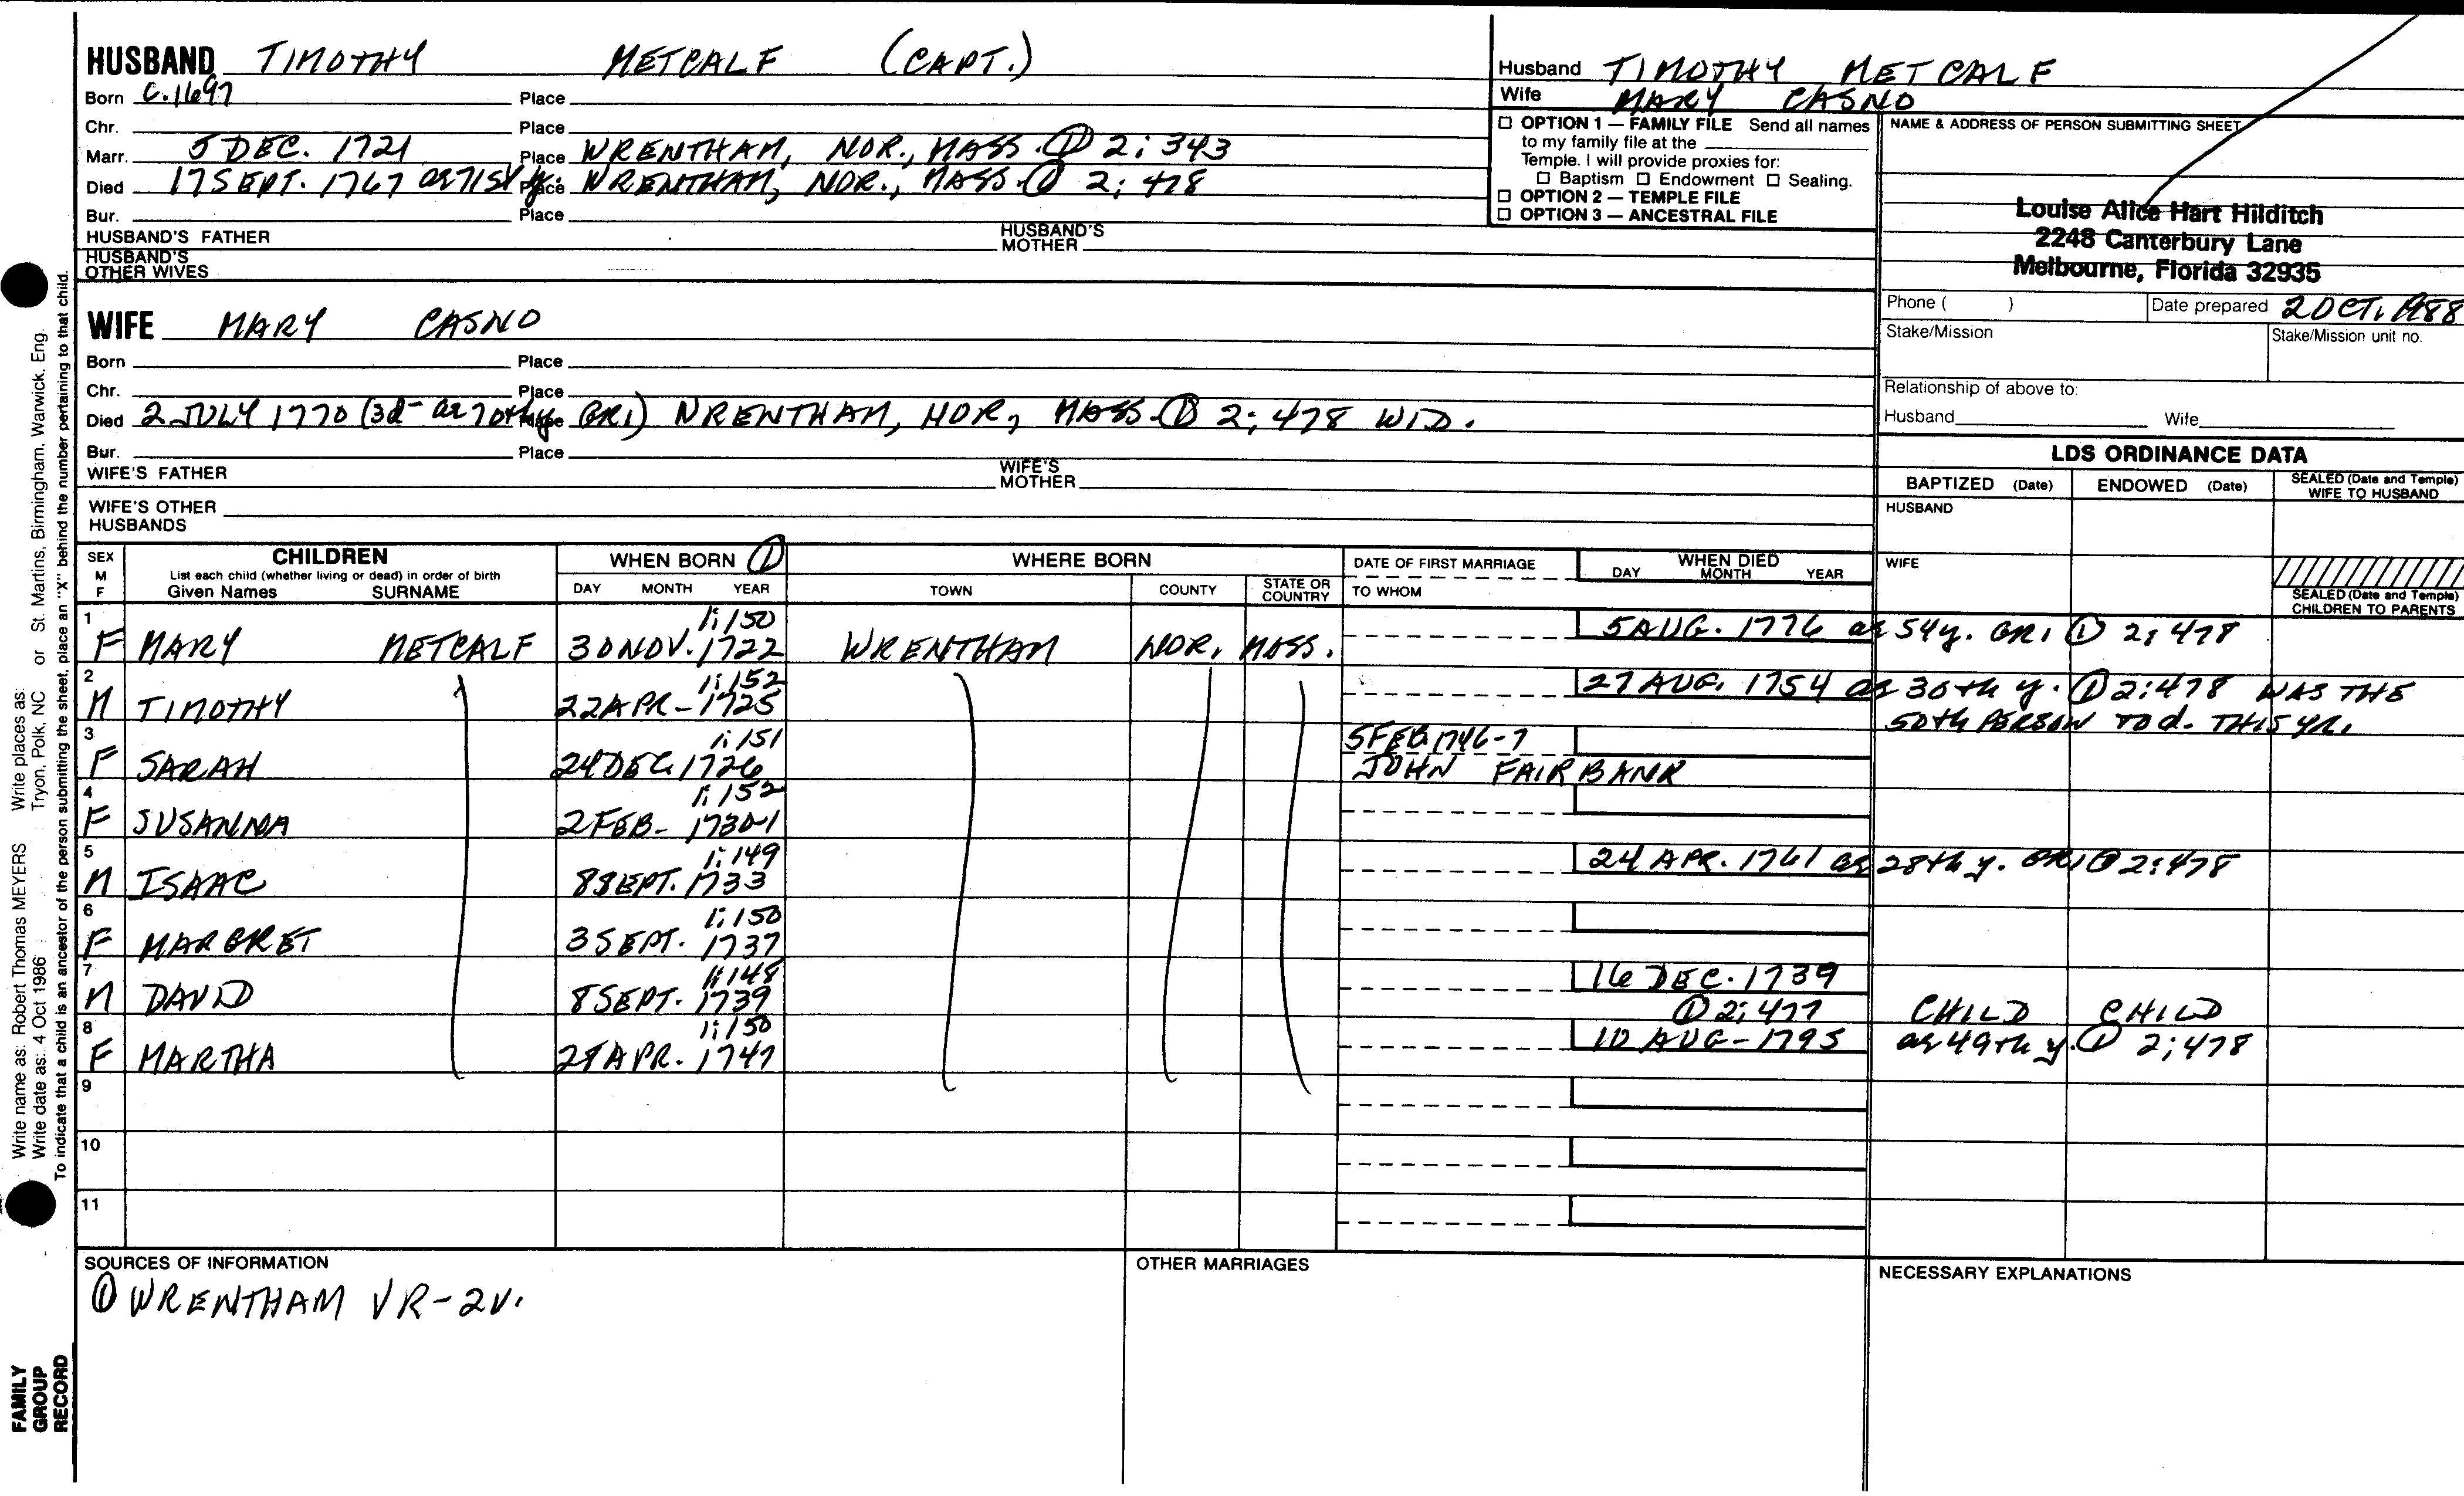 HUSBAND TIMOTHY METCALF (CAPT.)
Born C. 1697 Place
Chr. Place
Marr. 5 DEC. 1721 Place WRENTHAM, NOR., MASS. ① 2: 343
Died 17 SEPT. 1767 ae 71st y. Place WRENTHAM, NOR., MASS. ① 2: 478
Bur. Place
HUSBAND'S FATHER HUSBAND'S MOTHER
HUSBAND'S OTHER WIVES
WIFE MARY CASNO
Born Place
Chr. Place
Died 2 JULY 1770 (3d- ae 70th y. GR1) Place WRENTHAM, NOR, MASS. ① 2: 478 WID.
Bur. Place
WIFE'S FATHER WIFE'S MOTHER
WIFE'S OTHER HUSBANDS
Husband TIMOTHY METCALF
Wife MARY CASNO
☐ OPTION 1 — FAMILY FILE Send all names
to my family file at the
Temple. I will provide proxies for:
☐ Baptism ☐ Endowment ☐ Sealing.
☐ OPTION 2 — TEMPLE FILE
☐ OPTION 3 — ANCESTRAL FILE
NAME & ADDRESS OF PERSON SUBMITTING SHEET
Louise Alice Hart Hilditch
2248 Canterbury Lane
Melbourne, Florida 32935
Phone ( ) Date prepared 2 OCT. 1988
Stake/Mission Stake/Mission unit no.
Relationship of above to:
Husband Wife
LDS ORDINANCE DATA
BAPTIZED (Date) ENDOWED (Date) SEALED (Date and Temple) WIFE TO HUSBAND
HUSBAND
WIFE
SEALED (Date and Temple) CHILDREN TO PARENTS
SEX M F
CHILDREN
List each child (whether living or dead) in order of birth
Given Names SURNAME
WHEN BORN ①
DAY MONTH YEAR
WHERE BORN
TOWN COUNTY STATE OR COUNTRY
DATE OF FIRST MARRIAGE
TO WHOM
WHEN DIED
DAY MONTH YEAR
1 F MARY METCALF 30 NOV. 1722 1: 150 WRENTHAM NOR. MASS. 5 AUG. 1776 ae 54 y. GR1 ① 2: 478
2 M TIMOTHY 22 APR- 1725 1: 152 27 AUG. 1754 ae 30th y. ① 2: 478 WAS THE
50th PERSON TO d. THIS YR.
3 F SARAH 24 DEC. 1726 1: 151 5 FEB. 1746-7
JOHN FAIRBANK
4 F SUSANNA 2 FEB- 1730-1 1: 152
5 M ISAAC 8 SEPT. 1733 1: 149 24 APR. 1761 ae 28th y. GR1 ① 2: 478
6 F MARGRET 3 SEPT. 1737 1: 150
7 M DAVID 8 SEPT. 1739 1: 148 16 DEC. 1739
① 2: 477 CHILD CHILD
8 F MARTHA 27 APR. 1747 1: 150 10 AUG- 1795 ae 49th y. ① 2: 478
9
10
11
SOURCES OF INFORMATION
① WRENTHAM VR-2V.
OTHER MARRIAGES
NECESSARY EXPLANATIONS
Write name as: Robert Thomas MEYERS Write places as: Tryon, Polk, NC or St. Martins, Birmingham, Warwick, Eng.
Write date as: 4 Oct 1986
To indicate that a child is an ancestor of the person submitting the sheet, place an "X" behind the number pertaining to that child.
FAMILY
GROUP
RECORD